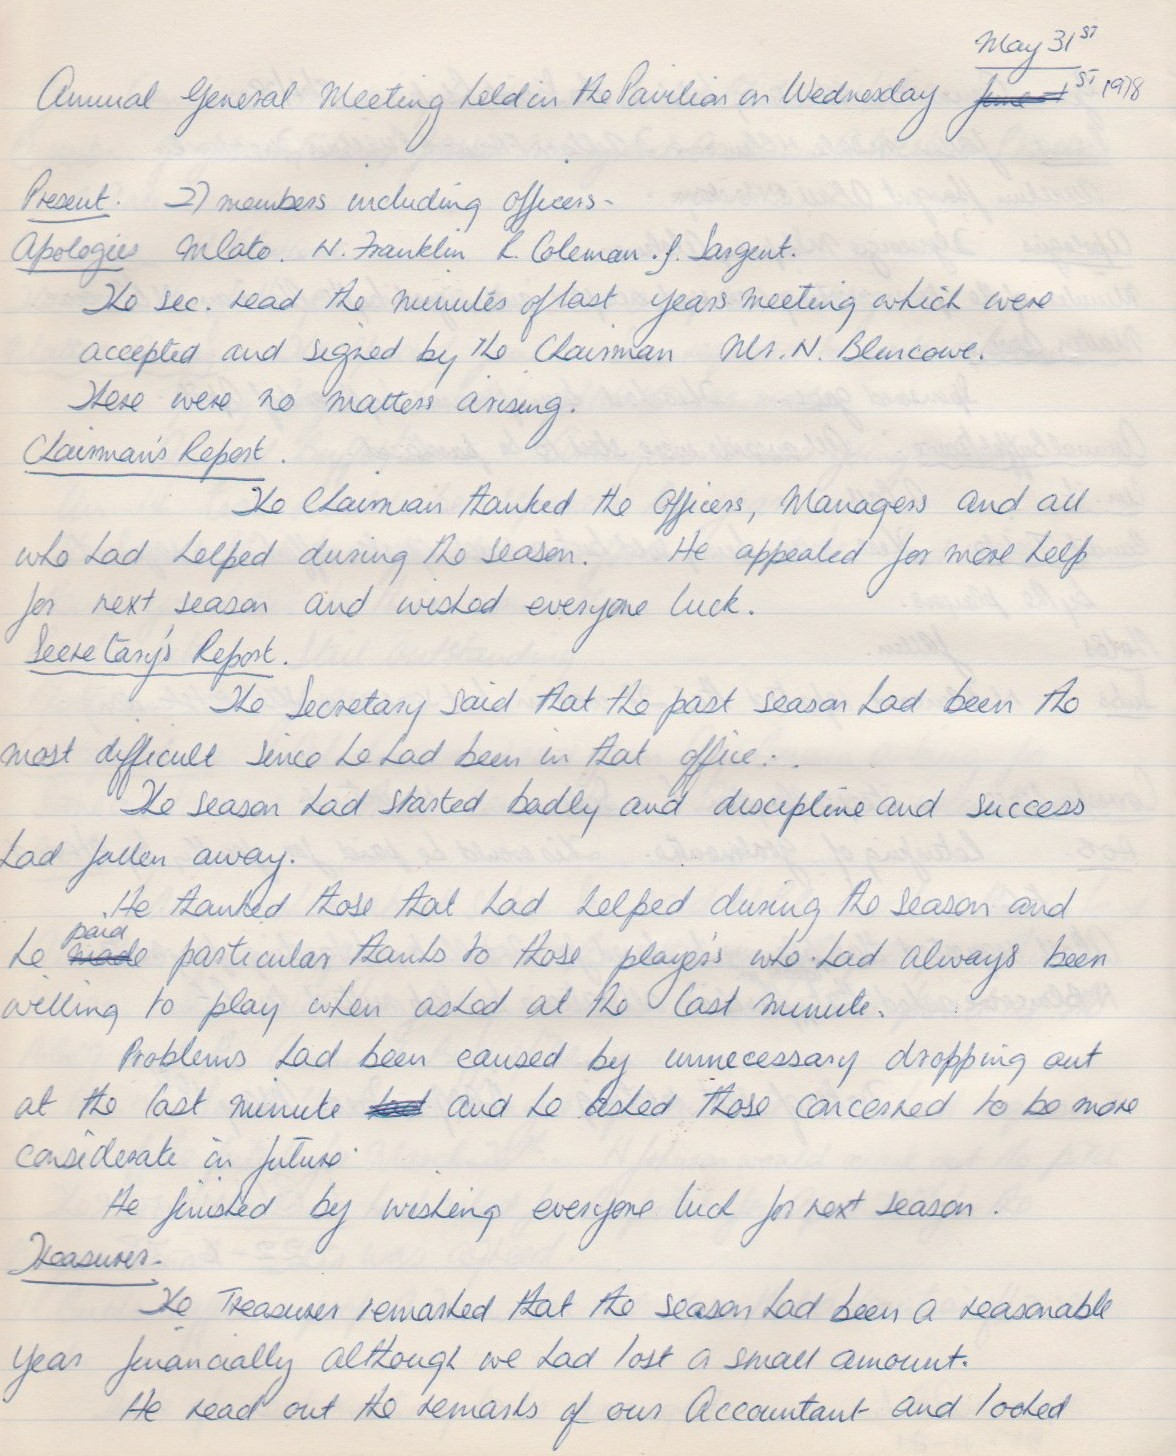 May 31ST
Annual General Meeting held in the Pavilion on Wednesday June 1ST 1978
Present. 27 members including officers-
Apologies M Cato. N. Franklin R. Coleman. J. Sargent.
The sec. read the minutes of last years meeting which were
accepted and signed by the Chairman Mr. N. Blencowe.
There were no matters arising.
Chairman's Report.
The Chairman thanked the Officers, Managers and all
who had helped during the season. He appealed for more help
for next season and wished everyone luck.
Secretary's Report.
The Secretary said that the past season had been the
most difficult since he had been in that office.
The season had started badly and discipline and success
had fallen away.
He thanked those that had helped during the season and
paid
he made particular thanks to those player's who had always been
willing to play when asked at the last minute.
Problems had been caused by unnecessary dropping out
at the last minute had and he asked those concerned to be more
considerate in future.
He finished by wishing everyone luck for next season.
Treasurer-
The Treasurer remarked that the season had been a reasonable
year financially although we had lost a small amount.
He read out the remarks of our Accountant and looked